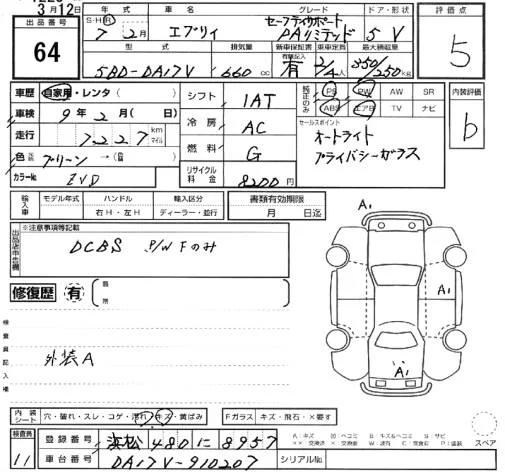 3月12日
出品番号
64
年式 車名 グレード ドア・形状
S・H・R 7年 2月 エブリィ セーフティサポート PAリミテッド 5 V
型式 排気量 新車保証書 乗車定員 最大積載量
5BD-DA17V 660cc 有 2/4人 350/250kg
評価点
5
車歴 自家用・レンタ( )
車検 9年 2月( 日)
走行 7227 km マイル
色 グリーン →(色 )
カラーNo. ZVD
シフト IAT
冷房 AC
燃料 G
リサイクル料金 8200円
純正のみ PS PW AW SR
ABS エアB TV ナビ
セールスポイント
オートライト
プライバシーガラス
内装評価
b
輸入車 モデル年式 ハンドル 輸入区分 書類有効期限
右H・左H ディーラー・並行 月 日迄
出品店申告欄
※注意事項等記載
DCBS P/W Fのみ
修復歴 有 箇所
検査員記入欄
外装A
A1
A1
A1
内装シート 穴・破れ・スレ・コゲ・汚れ・キズ・黄ばみ Fガラス キズ・飛石・×要す
検査員 11
登録番号 浜松 480 に 8957
車台番号 DA17V-910207 シリアルNo.
スペア